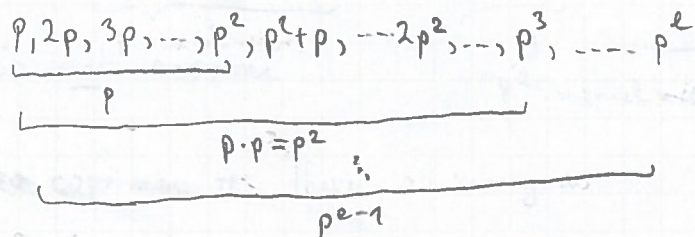 p, 2p, 3p, ..., p², p²+p, ... 2p², ..., p³, ..... pᵉ
p
p·p = p²
⋮
pᵉ⁻¹